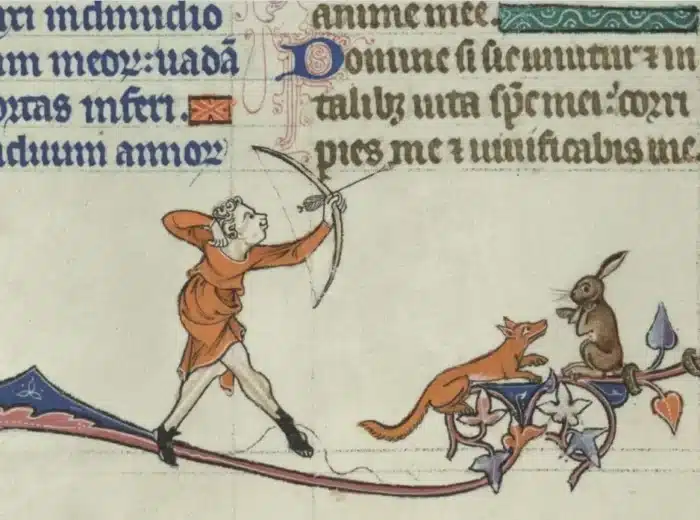 xi in dimidio
um meoꝝ: uadā
ortas inferi.
iduum annoꝝ
anime mee.
Domine si sic uiuitur ⁊ in
talibꝫ uita sp̄c mei: corri
pies me ⁊ uiuificabis me.